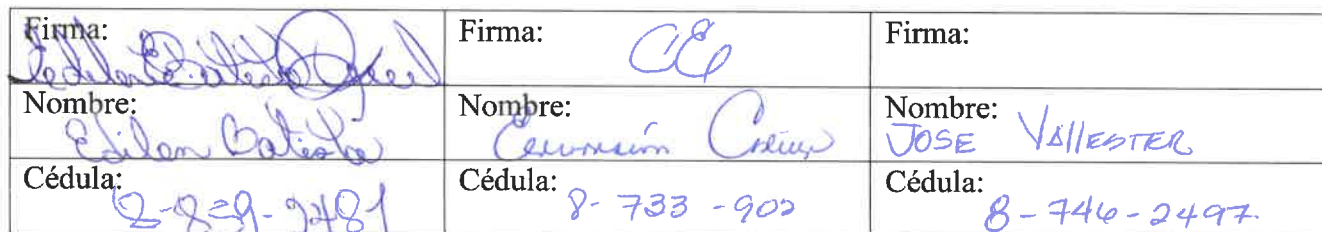 Firma: Firma: CE Firma:
Nombre: Edilen Batista Nombre: Nombre: JOSE VAllESTER
Cédula: Cédula: 8-733-902 Cédula: 8-746-2497